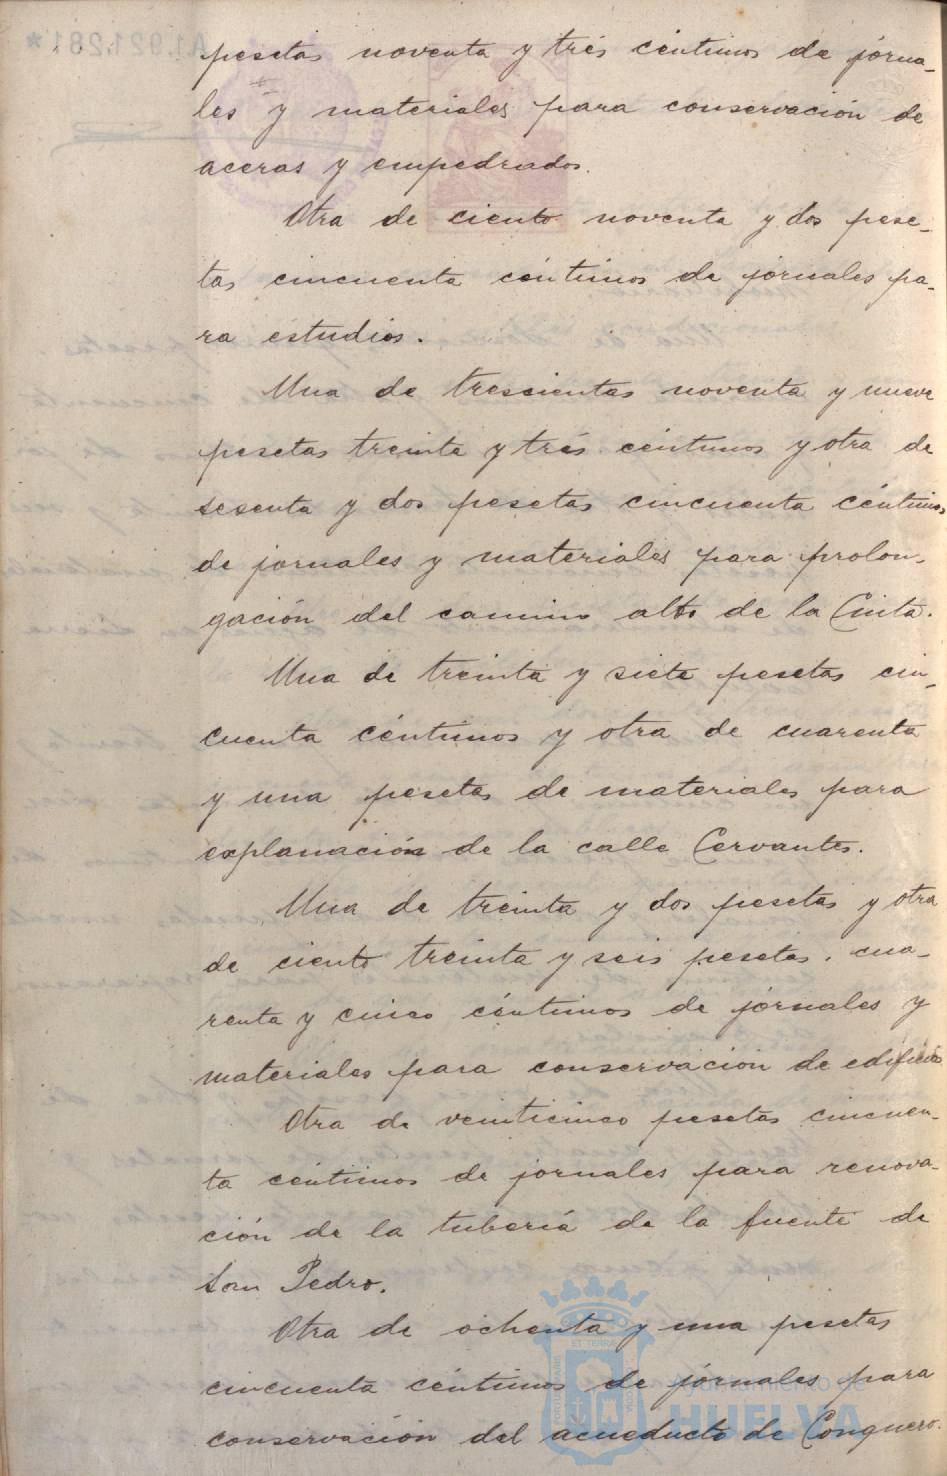 pesetas noventa y trés céntimos de jórna-
les y materiales para conservación de
aceras y empedrados.
Otra de ciento noventa y dos pese-
tas cincuenta céntimos de jórnales pa-
ra estudios.
Una de trescientas noventa y nueve
pesetas treinta y trés céntimos y otra de
sesenta y dos pesetas cincuenta céntimos
de jornales y materiales para prolon-
gación del camino alto de la Cinta.
Una de treinta y siete pesetas cin-
cuenta céntimos y otra de cuarenta
y una pesetas de materiales para
explanación de la calle Cervantes.
Una de treinta y dos pesetas y otra
de ciento treinta y seis pesetas, cua-
renta y cinco céntimos de jórnales y
materiales para conservación de edificios
Otra de veinticinco pesetas cincuen-
ta céntimos de jornales para renova-
ción de la tubería de la fuente de
San Pedro.
Otra de ochenta y una pesetas
cincuenta céntimos de jórnales para
conservación del acueducto de Conquero.
Ayuntamiento de
HUELVA